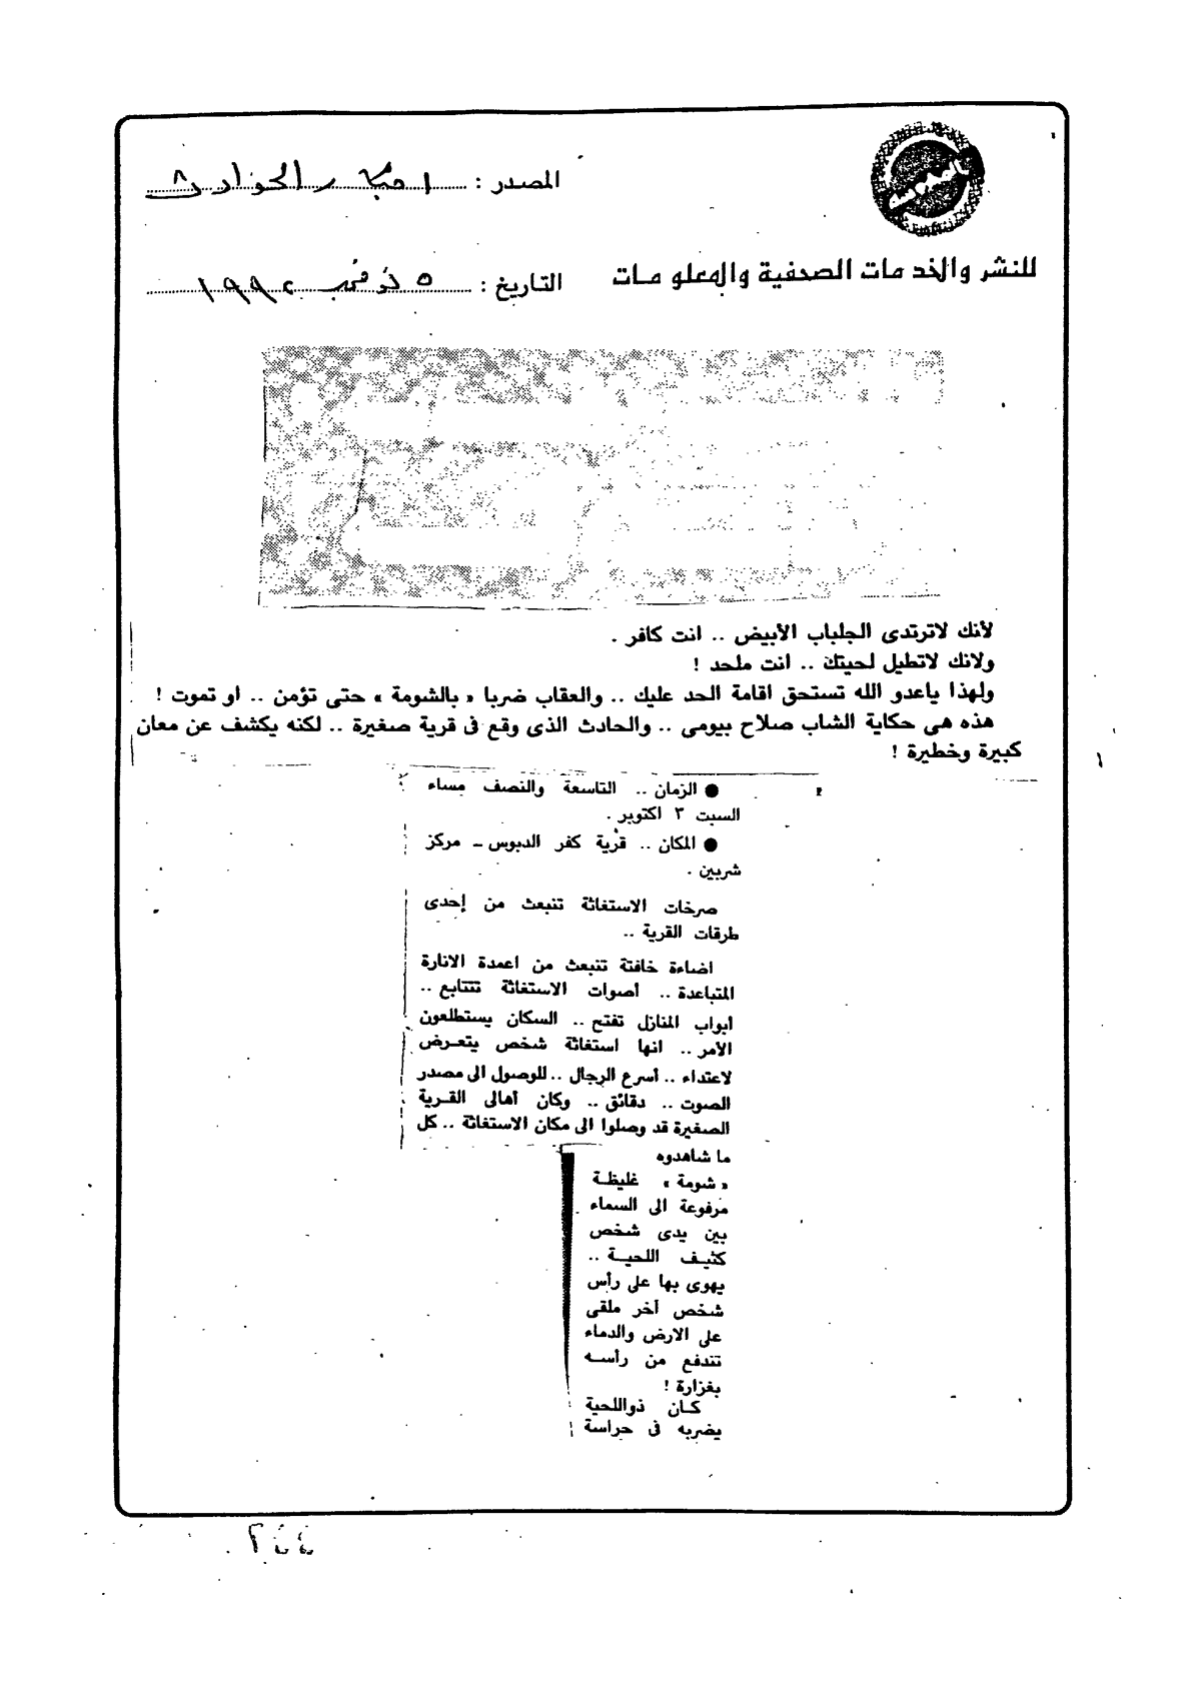 المصدر : اخبار الحوادث
للنشر والخدمات الصحفية والمعلومات
التاريخ : ٥ نوفمبر ١٩٩٢
لأنك لاترتدى الجلباب الأبيض .. انت كافر .
ولانك لاتطيل لحيتك .. انت ملحد !
ولهذا ياعدو الله تستحق اقامة الحد عليك .. والعقاب ضربا « بالشومة » حتى تؤمن .. او تموت !
هذه هى حكاية الشاب صلاح بيومى .. والحادث الذى وقع فى قرية صغيرة .. لكنه يكشف عن معان
كبيرة وخطيرة !
● الزمان .. التاسعة والنصف مساء
السبت ٣ اكتوبر .
● المكان .. قرية كفر الدبوس ـ مركز
شربين .
صرخات الاستغاثة تنبعث من إحدى
طرقات القرية ..
اضاءة خافتة تنبعث من اعمدة الانارة
المتباعدة .. أصوات الاستغاثة تتتابع ..
أبواب المنازل تفتح .. السكان يستطلعون
الأمر .. انها استغاثة شخص يتعرض
لاعتداء .. أسرع الرجال .. للوصول الى مصدر
الصوت .. دقائق .. وكان أهالى القرية
الصغيرة قد وصلوا الى مكان الاستغاثة .. كل
ما شاهدوه
« شومة » غليظة
مرفوعة الى السماء
بين يدى شخص
كثيف اللحية ..
يهوى بها على رأس
شخص آخر ملقى
على الارض والدماء
تندفع من رأسه
بغزارة !
كان ذواللحية
يضربه فى حراسة